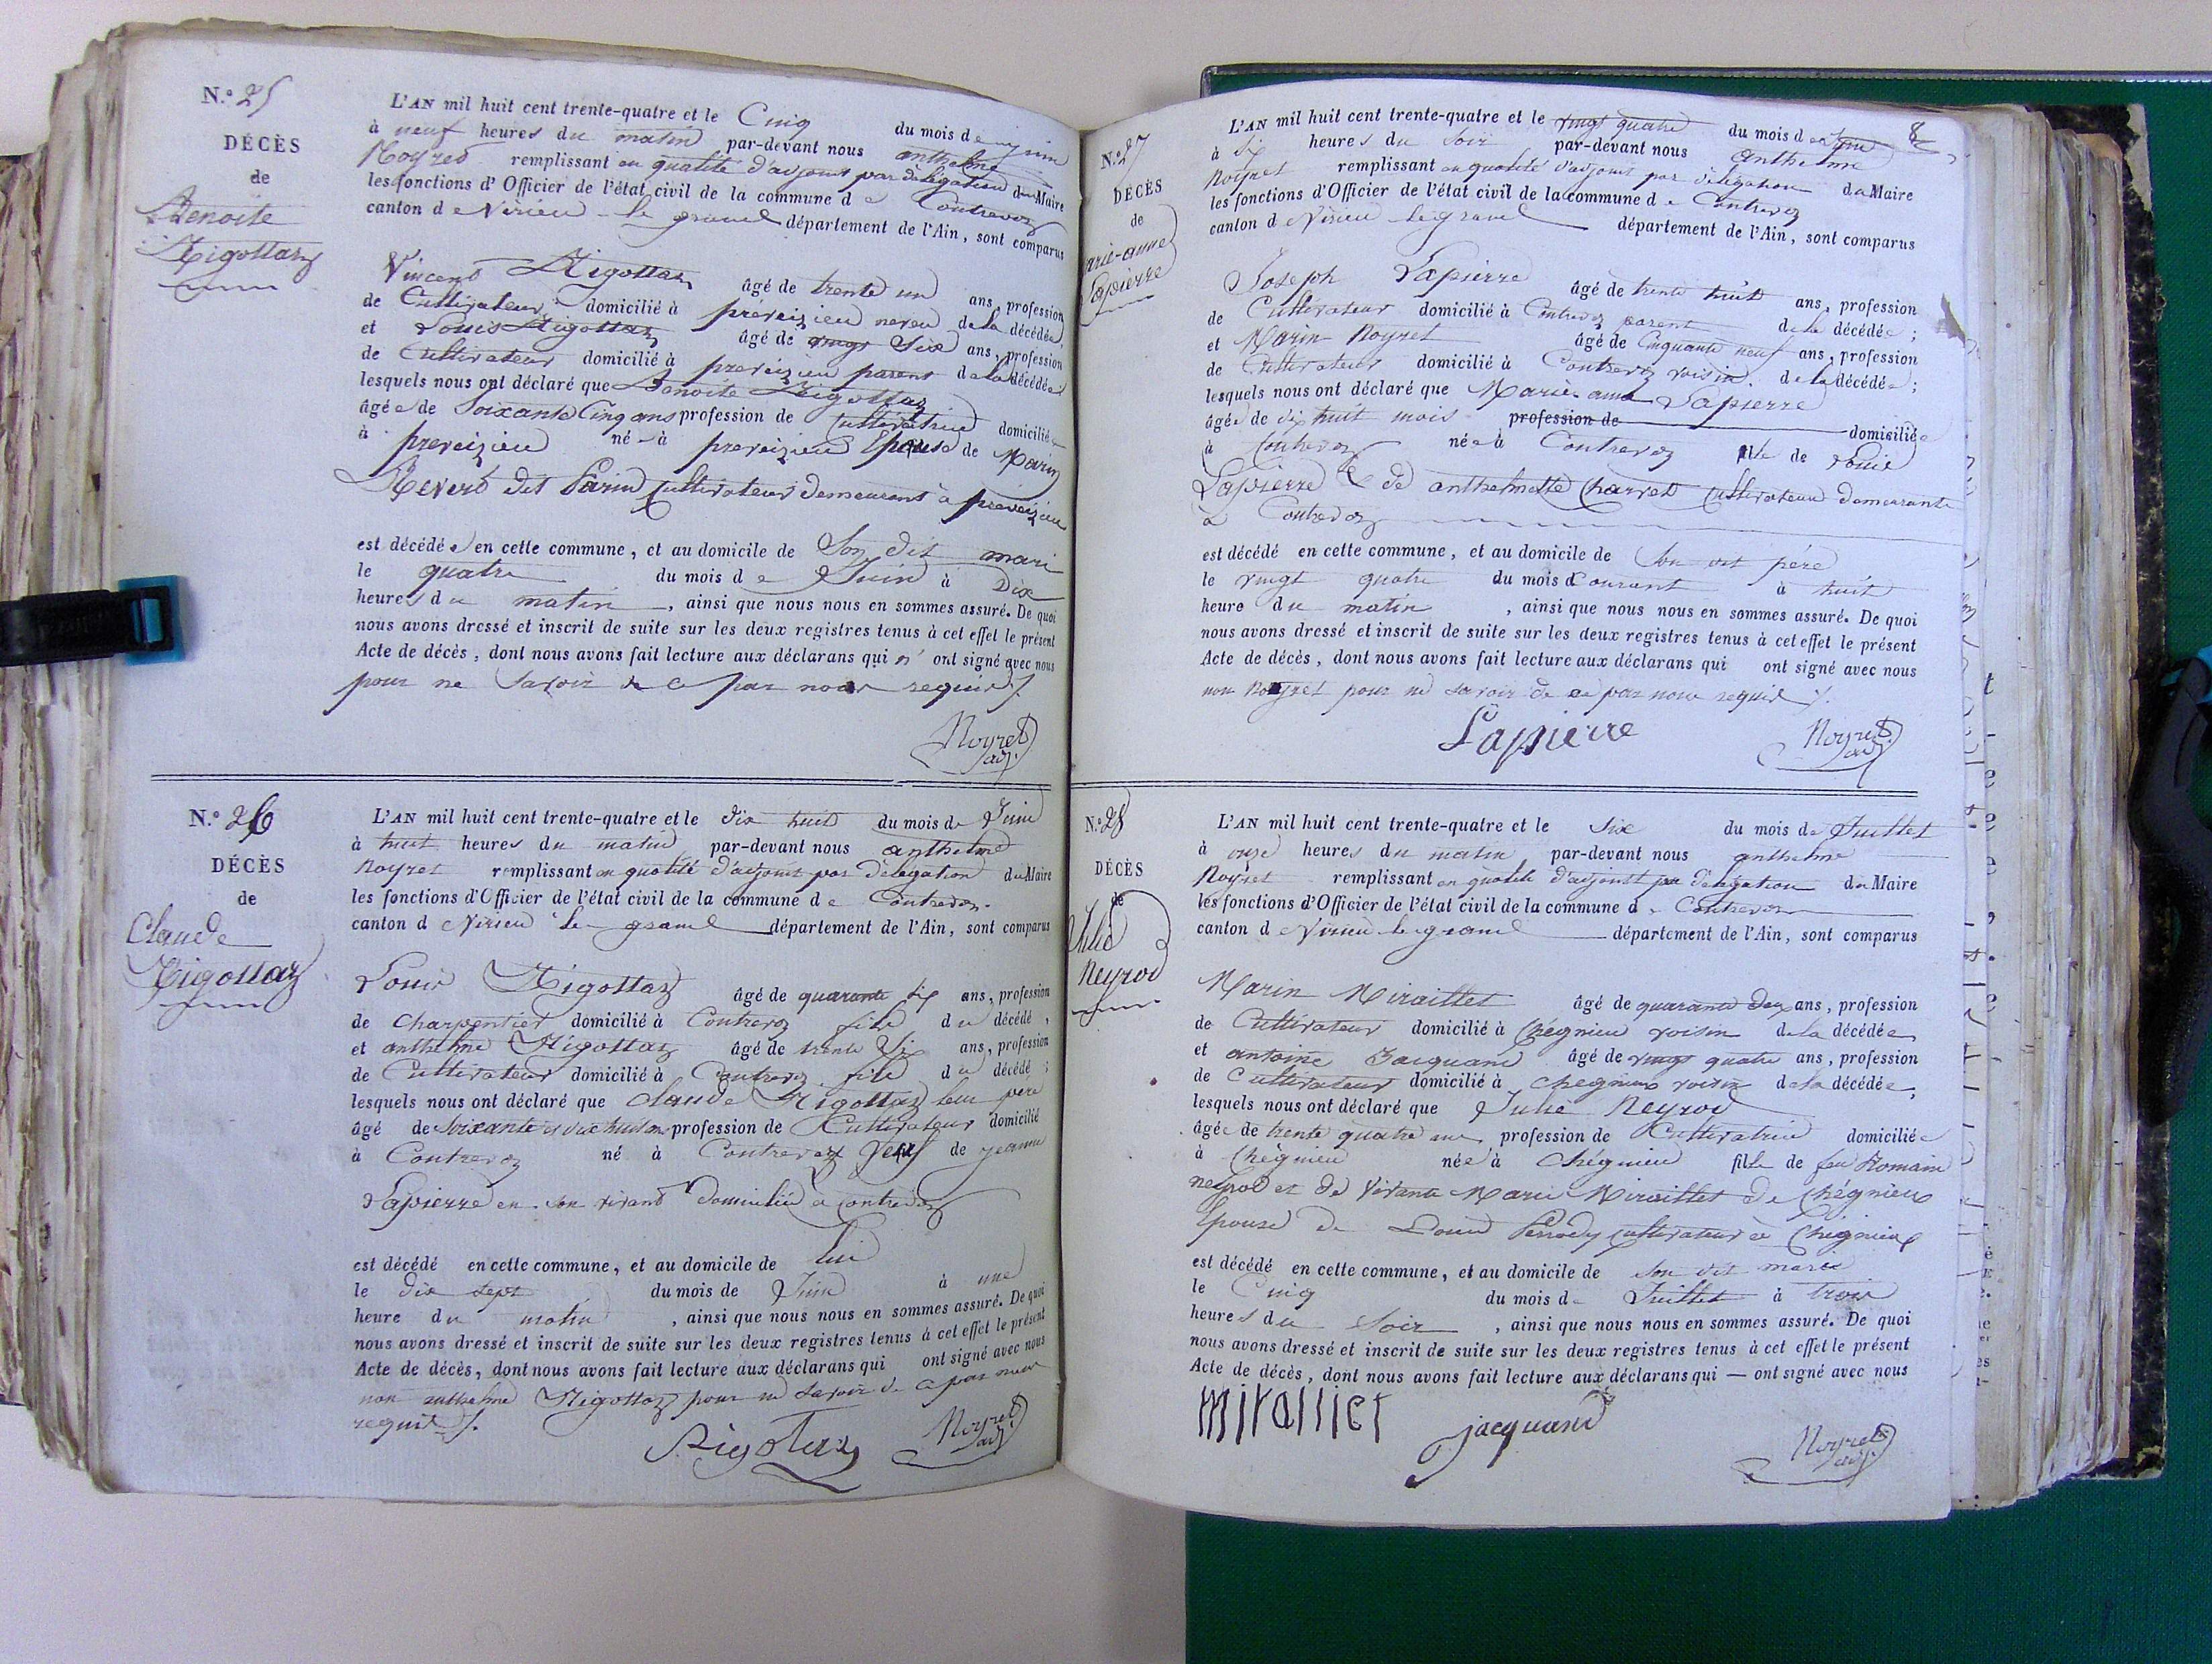 N.° 25
DÉCÈS
de
Benoite
Rigottaz
L'AN mil huit cent trente-quatre et le Cinq du mois de juin
à neuf heures du matin par-devant nous anthelme
Noyret remplissant en qualité d'adjoint par délégation du Maire
les fonctions d'Officier de l'état civil de la commune de Contrevoz
canton de Virieu le grand département de l'Ain, sont comparus
Vincent Rigottaz âgé de trente un ans, profession
de Cultivateur domicilié à préveizieu neveu de la décédée,
et Louis Rigottaz âgé de vingt Six ans, profession
de Cultivateur domicilié à preveizieu parent de la décédée
lesquels nous ont déclaré que Benoite Rigottaz
âgée de Soixante Cinq ans profession de Cultivatrice domiciliée
à preveizieu née à preveizieu Epouse de Marin
Revert dit Parin Cultivateur demeurant à preveizieu
est décédée en cette commune, et au domicile de Son dit mari
le quatre du mois de Juin à Dix
heures du matin, ainsi que nous nous en sommes assuré. De quoi
nous avons dressé et inscrit de suite sur les deux registres tenus à cet effet le présent
Acte de décès, dont nous avons fait lecture aux déclarans qui n'ont signé avec nous
pour ne Savoir de ce par nous requis ./.
Noyret
adj.
N.° 26
DÉCÈS
de
Claude
Rigottaz
L'AN mil huit cent trente-quatre et le dix huit du mois de Juin
à huit heures du matin par-devant nous anthelme
Noyret remplissant en qualité d'adjoint par délégation du Maire
les fonctions d'Officier de l'état civil de la commune de Contrevoz
canton de Virieu le grand département de l'Ain, sont comparus
Louis Rigottaz âgé de quarante six ans, profession
de charpentier domicilié à Contrevoz fils du décédé,
et anthelme Rigottaz âgé de trente Six ans, profession
de Cultivateur domicilié à Contrevoz fils du décédé;
lesquels nous ont déclaré que Claude Rigottaz leur père
âgé de Soixante et dix huit ans profession de Cultivateur domicilié
à Contrevoz né à Contrevoz Veuf de jeanne
Lapierre en son vivant Domiciliée à Contrevoz
est décédé en cette commune, et au domicile de lui
le dix sept du mois de Juin à une
heure du matin, ainsi que nous nous en sommes assuré. De quoi
nous avons dressé et inscrit de suite sur les deux registres tenus à cet effet le présent
Acte de décès, dont nous avons fait lecture aux déclarans qui ont signé avec nous
non anthelme Rigottaz pour ne Savoir de ce par nous
requis ./.
Rigotaz
Noyret
adj.
8
N.° 27
DÉCÈS
de
arie-anne
Lapierre
L'AN mil huit cent trente-quatre et le vingt quatre du mois de Juin
à six heures du Soir par-devant nous Anthelme
Noyret remplissant en qualité d'adjoint par délégation du Maire
les fonctions d'Officier de l'état civil de la commune de Contrevoz
canton de Virieu le grand département de l'Ain, sont comparus
Joseph Lapierre âgé de trente huit ans, profession
de Cultivateur domicilié à Contrevoz parent de la décédée;
et Marin Noyret âgé de Cinquante neuf ans, profession
de Cultivateur domicilié à Contrevoz voisin de la décédée;
lesquels nous ont déclaré que Marie-anne Lapierre
âgée de dix huit mois profession de domiciliée
à Contrevoz née à Contrevoz fille de Louis
Lapierre & de anthelmette Charvet Cultivateur demeurants
à Contrevoz
est décédé en cette commune, et au domicile de Son dit père
le vingt quatre du mois Courant à huit
heure du matin, ainsi que nous nous en sommes assuré. De quoi
nous avons dressé et inscrit de suite sur les deux registres tenus à cet effet le présent
Acte de décès, dont nous avons fait lecture aux déclarans qui ont signé avec nous
non Noyret pour ne Savoir de ce par nous requis ./.
Lapierre
Noyret
adj.
N.° 28
DÉCÈS
de
Julie
Neyrod
L'AN mil huit cent trente-quatre et le Six du mois de Juillet
à onze heures du matin par-devant nous anthelme
Noyret remplissant en qualité d'adjoint par délégation du Maire
les fonctions d'Officier de l'état civil de la commune de Contrevoz
canton de Virieu le grand département de l'Ain, sont comparus
Marin Miraillet âgé de quarante deux ans, profession
de Cultivateur domicilié à Chégnieu voisin de la décédée
et antoine Jacquand âgé de vingt quatre ans, profession
de Cultivateur domicilié à chegnieu voisin de la décédée,
lesquels nous ont déclaré que Julie Neyrod
âgée de trente quatre ans profession de Cultivatrice domiciliée
à Chégnieu née à Chégnieu fille de feu Romain
neyrod et de Vivante Marie Miraillet de Chégnieu
Epouse de Louis Perrody Cultivateur à Chégnieu
est décédé en cette commune, et au domicile de Son dit mari
le Cinq du mois de Juillet à trois
heures du Soir, ainsi que nous nous en sommes assuré. De quoi
nous avons dressé et inscrit de suite sur les deux registres tenus à cet effet le présent
Acte de décès, dont nous avons fait lecture aux déclarans qui — ont signé avec nous
mirallief
jacquand
Noyret
adj.